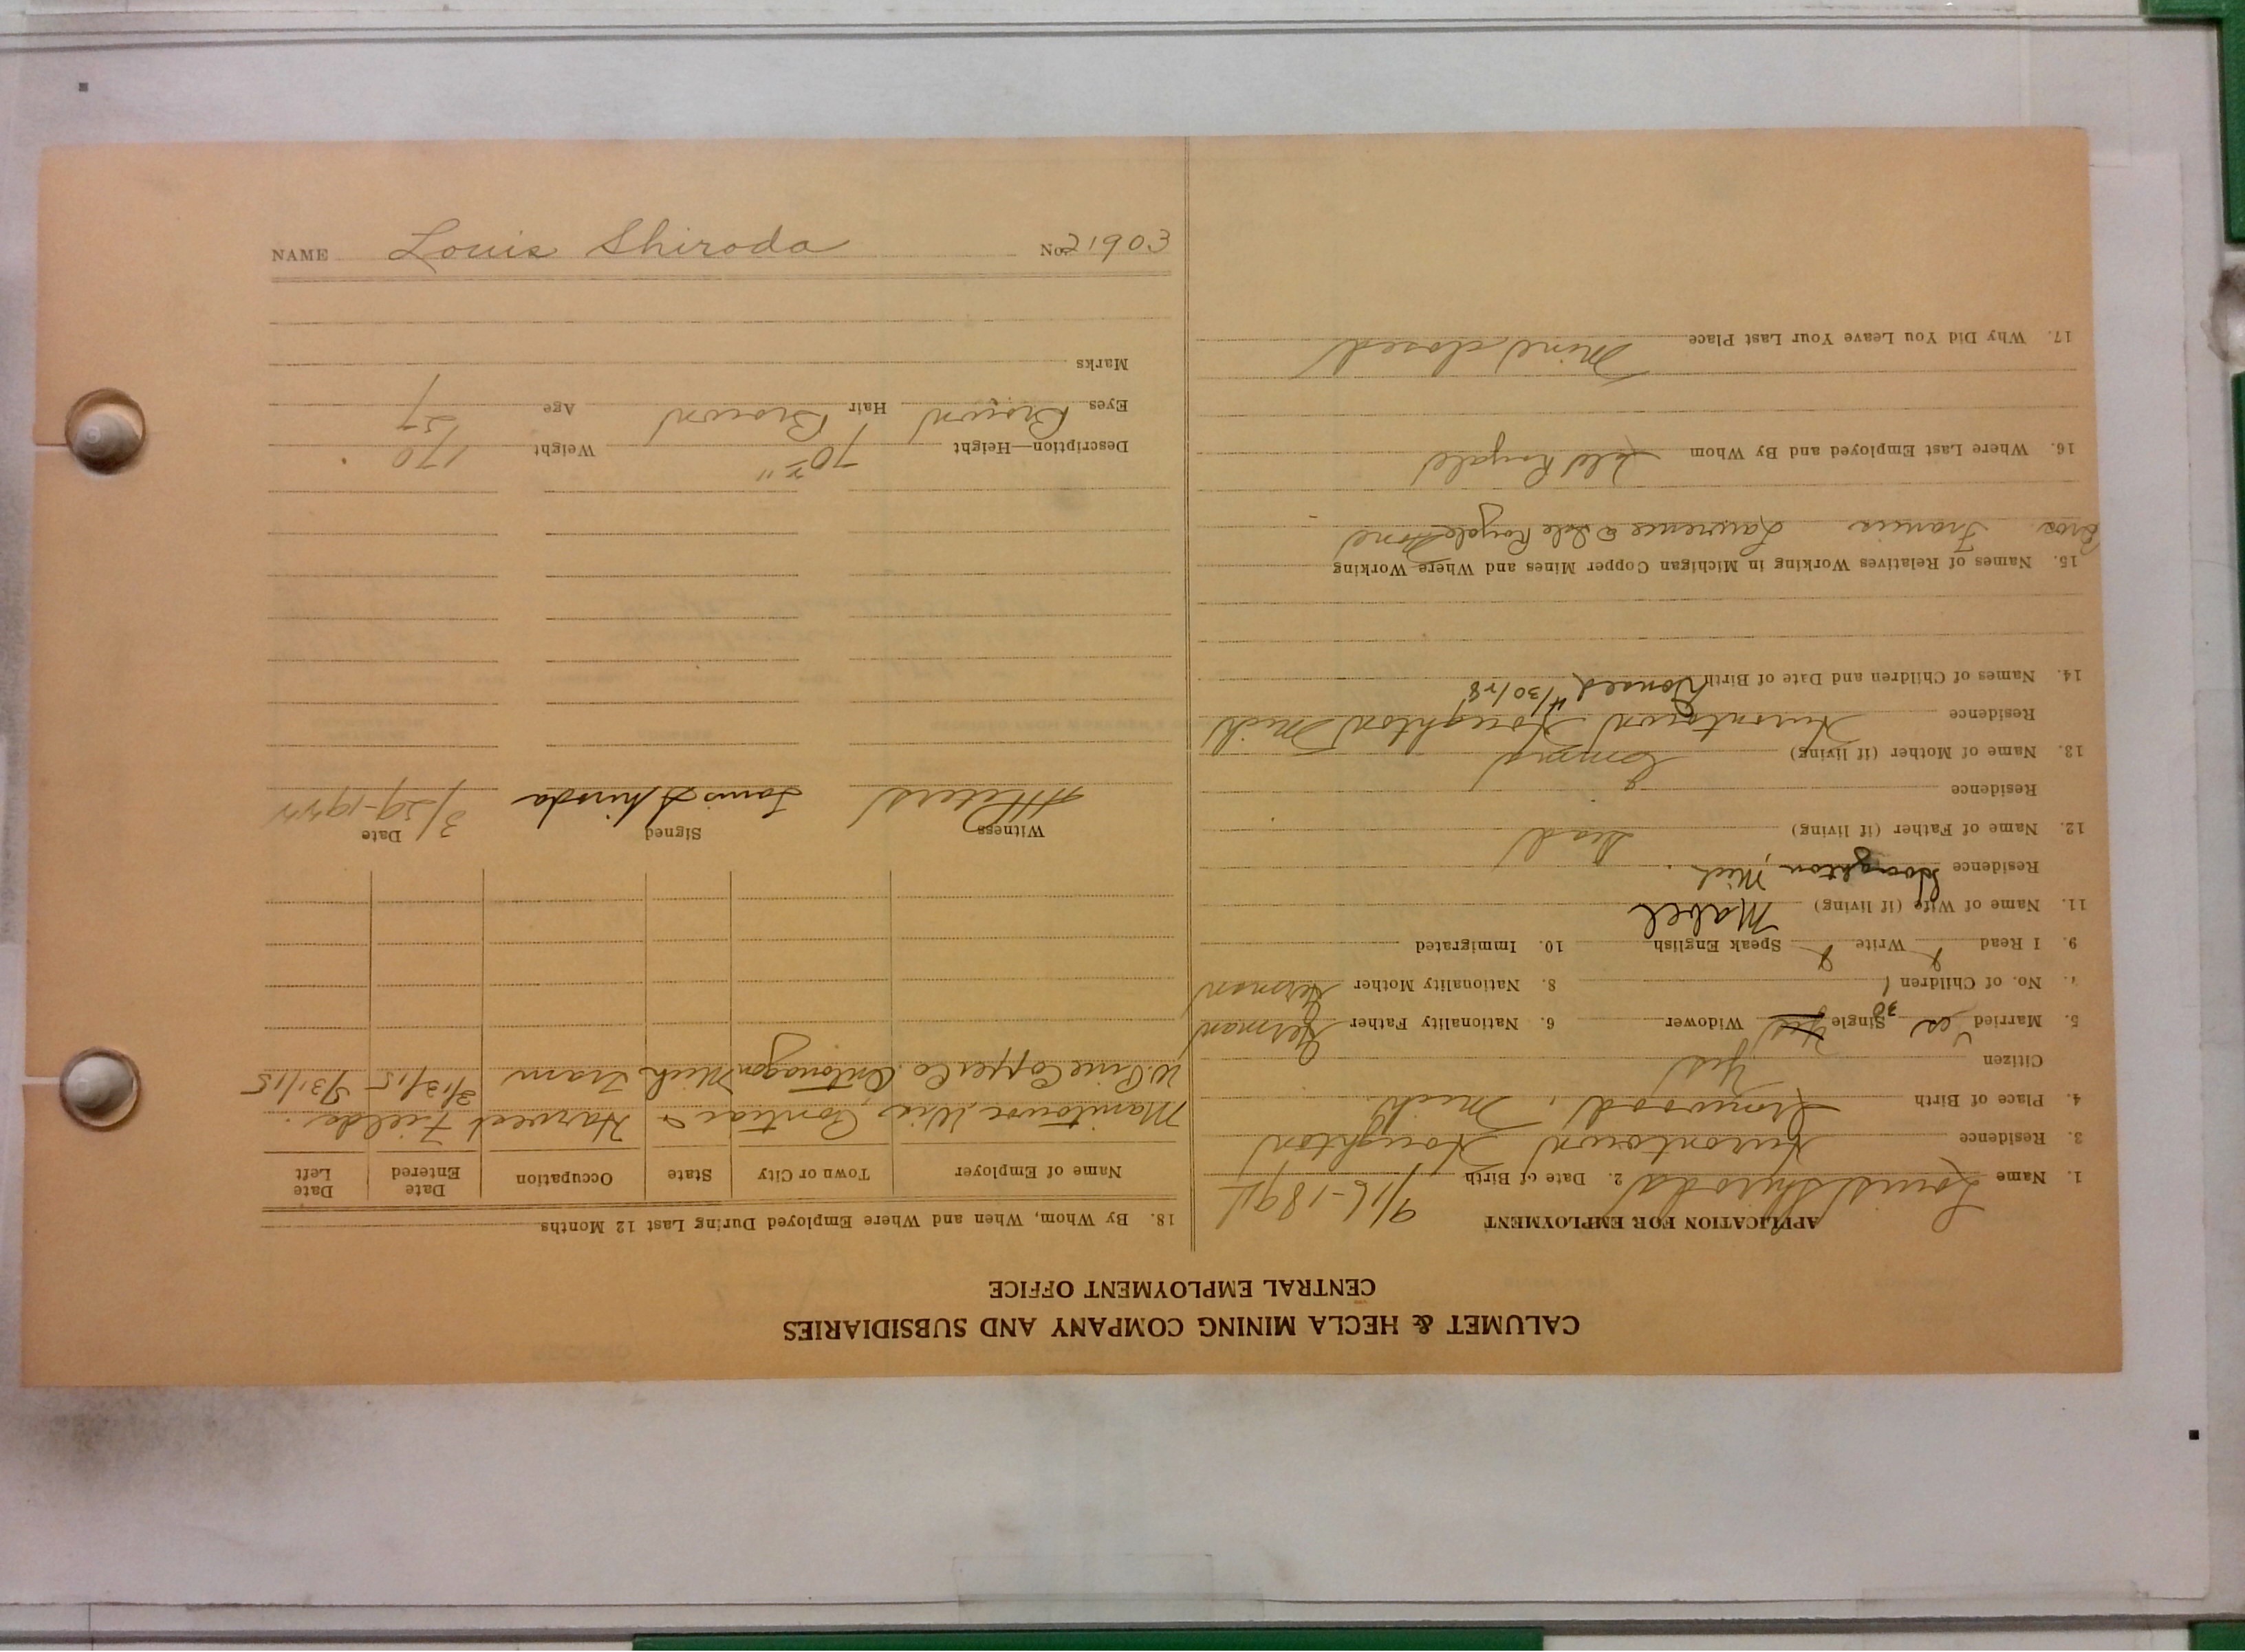 CALUMET & HECLA MINING COMPANY AND SUBSIDIARIES
CENTRAL EMPLOYMENT OFFICE
APPLICATION FOR EMPLOYMENT
1. Name Louis Shiroda 2. Date of Birth
3. Residence Hurontown Houghton
4. Place of Birth Ironwood, Mich
Citizen Yes
5. Married Yes 30 Single Yes Widower 6. Nationality Father German
7. No. of Children 1 8. Nationality Mother German
9. I Read Write Speak English 10. Immigrated
11. Name of Wife (if living) Mabel
Residence Houghton, Mich.
12. Name of Father (if living) Dead
Residence
13. Name of Mother (if living) Emma
Residence Hurontown Houghton Mich
14. Names of Children and Date of Birth Donald 4/30/28
15. Names of Relatives Working in Michigan Copper Mines and Where Working
Bros. Francis Lawrence Isle Royale
16. Where Last Employed and By Whom Isle Royale
17. Why Did You Leave Your Last Place Mine closed
18. By Whom, When and Where Employed During Last 12 Months
Name of Employer Town or City State Occupation Date Entered Date Left
Manitowoc Wis Pontiac Harvest Fields.
W. Pine Copper Co. Ontonagon Mich Tram 3/13/15 5/31/15
Witness Signed Date
Peters Louis Shiroda
Description—Height 70 Weight 170
Eyes Brown Hair Brown Age
Marks
NAME Louis Shiroda No. 21903